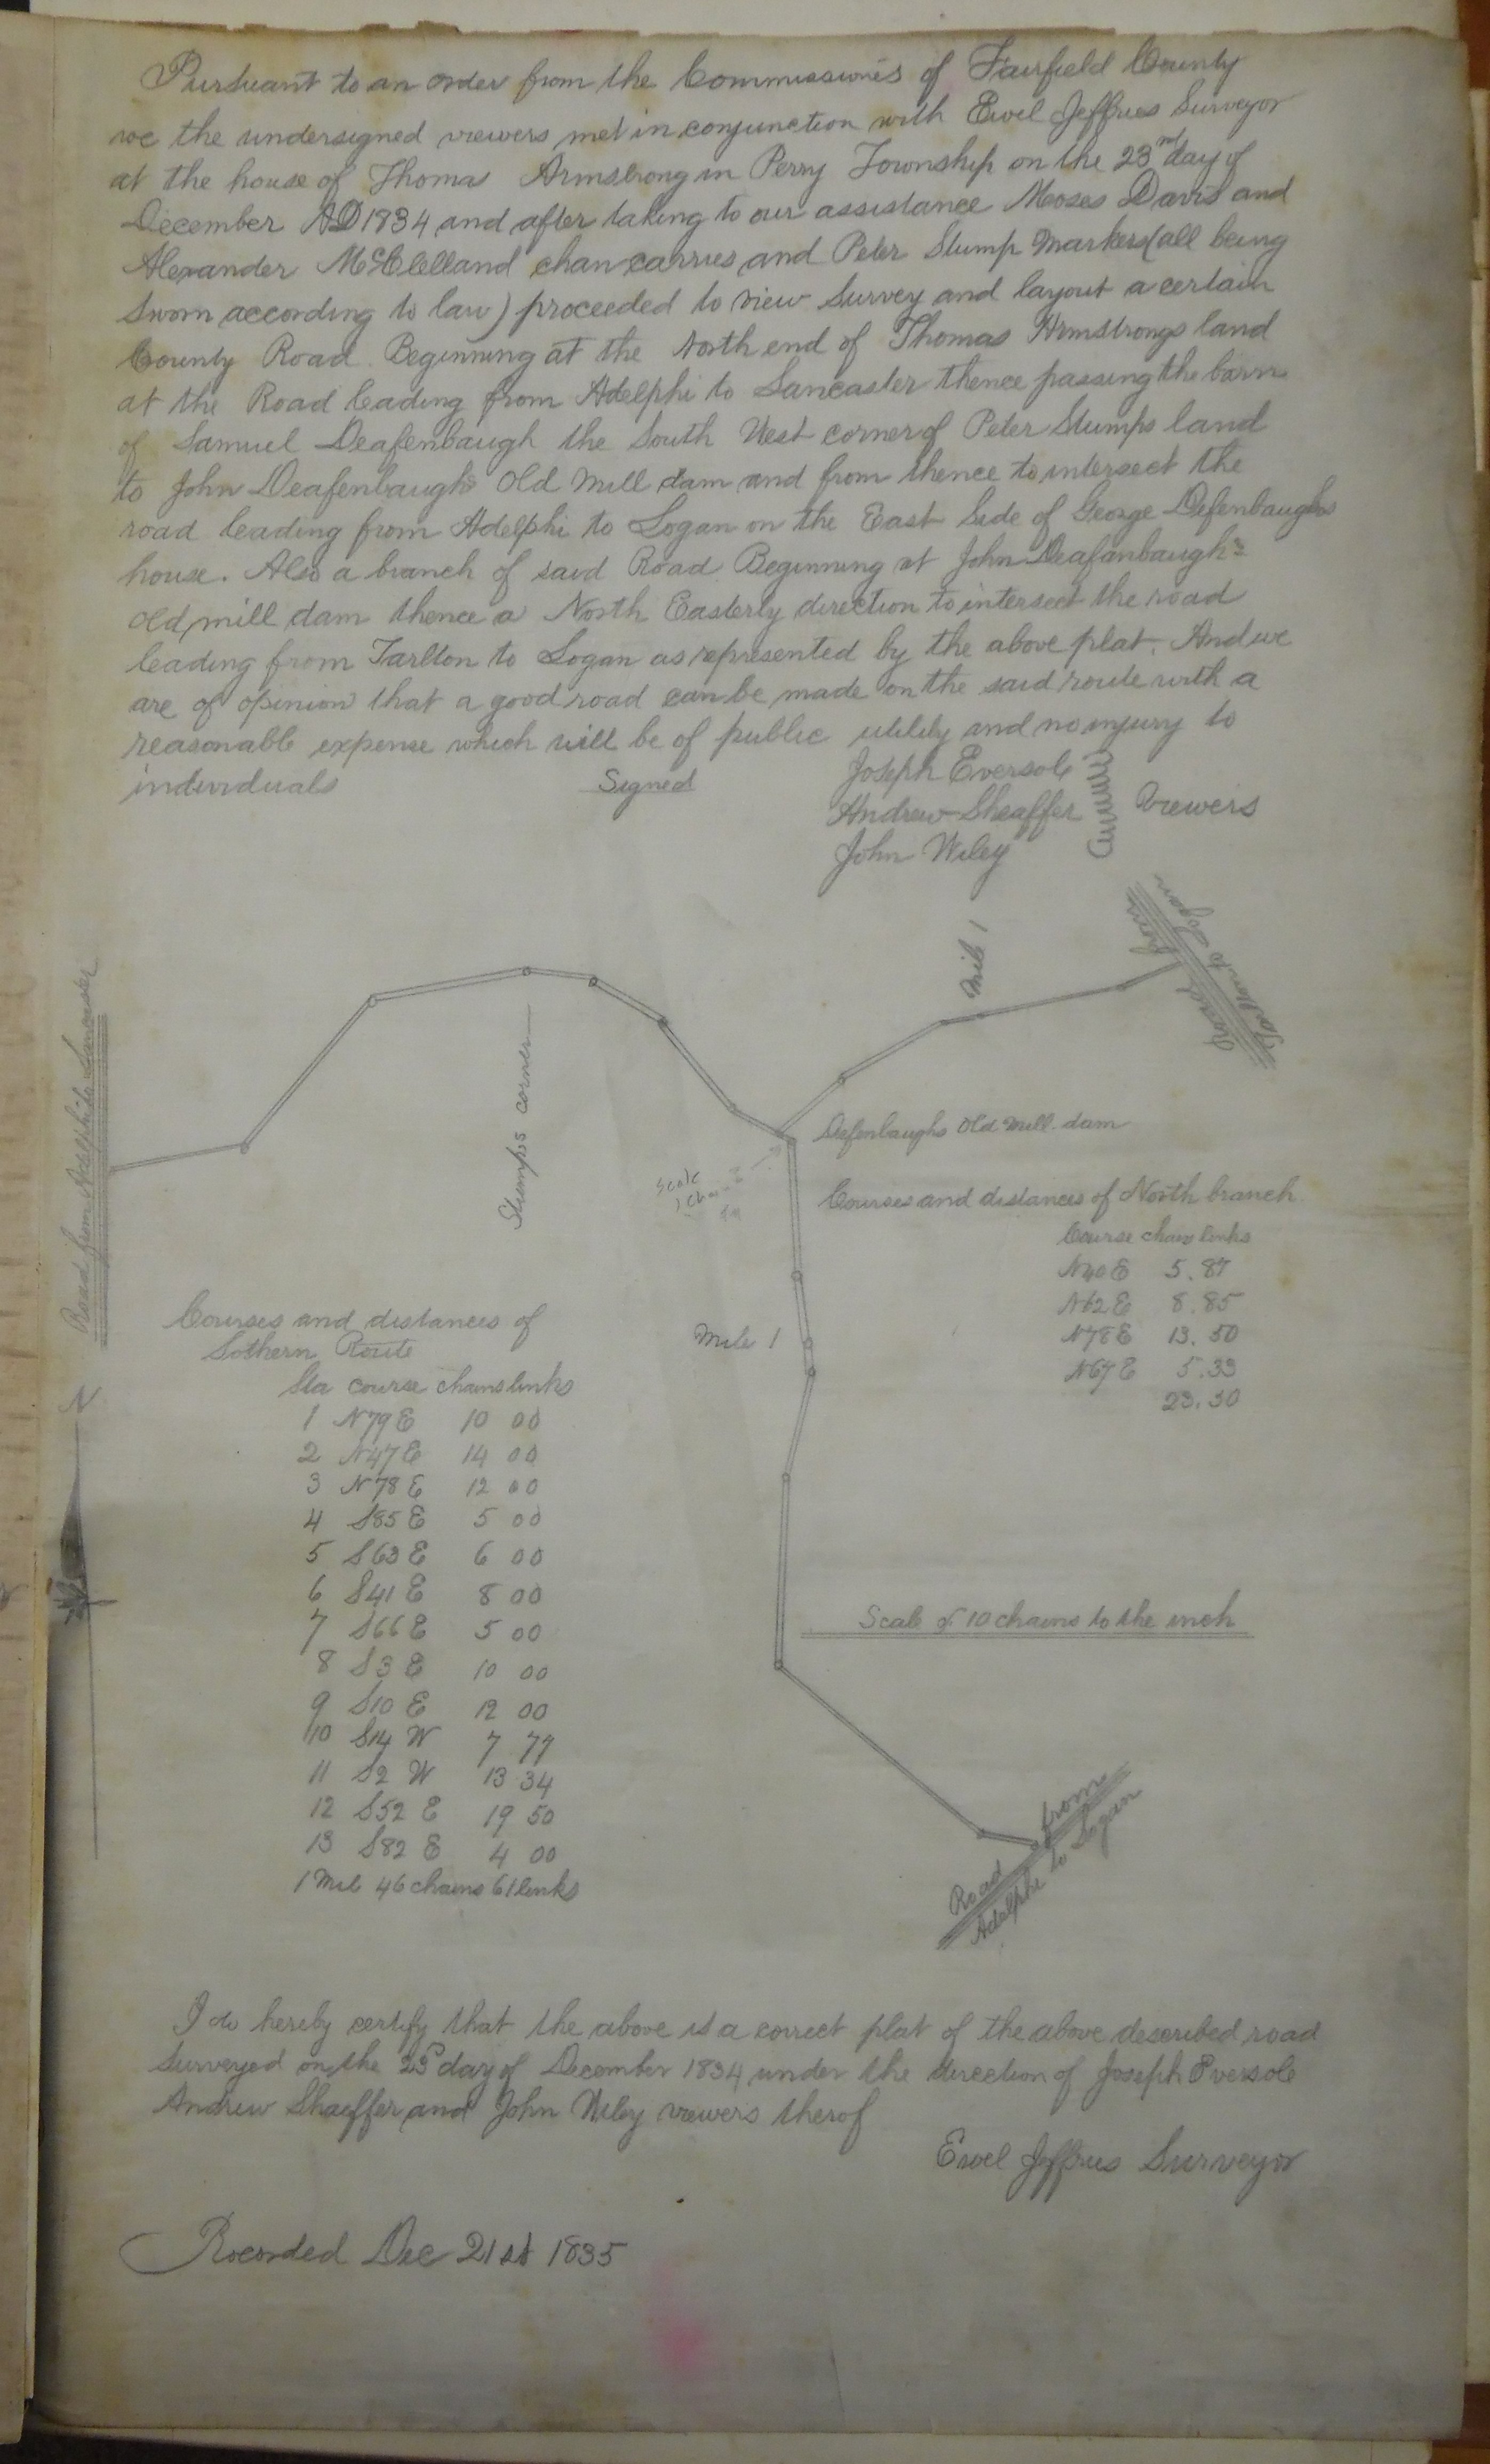 Pursuant to an order from the Commissiones of Fairfield County
we the undersigned viewers met in conjunction with Ewel Jeffries Surveyor
at the house of Thomas Armstrong in Perry Township on the 23rd day of
December AD 1834 and after taking to our assistance Moses Davis and
Alexander McClelland chan carries and Peter Stump Markers (all being
sworn according to law) proceeded to view Survey and layout a certain
County Road Beginning at the North end of Thomas Armstrongs land
at the Road leading from Adelphi to Lancaster thence passing the barn
of Samuel Deafenbaugh the South West corner of Peter Stumps land
to John Deafenbaughs Old Mill dam and from thence to intersect the
road leading from Adelphi to Logan on the East Side of George Defenbaughs
house. Also a branch of said Road Beginning at John Deafanbaugh's
old mill dam thence a North Easterly direction to intersect the road
leading from Tarlton to Logan as represented by the above plat. And we
are of opinion that a good road can be made on the said route with a
reasonable expense which will be of public utility and no injury to
individuals Signed
Joseph Eversole
Andrew Sheaffer Viewers
John Wiley
Road from Adelphi to Lancaster
Stumps corner
Mile 1
Road from
Tarlton to Logan
Defenbaughs Old Mill dam
Scale
1 Cha
Courses and distances of North branch
Course chain links
N40E 5.87
N62E 8.85
N78E 13.50
N67E 5.33
23.30
Mile 1
Courses and distances of
Sothern Route
Sta course chains links
1 N79E 10 00
2 N47E 14 00
3 N78E 12 00
4 S85E 5 00
5 S63E 6 00
6 S41E 8 00
7 S66E 5 00
8 S3E 10 00
9 S10E 12 00
10 S14W 7 77
11 S2W 13 34
12 S52E 19 50
13 S82E 4 00
1 Mile 46 chains 61 links
N
Scale of 10 chains to the inch
Road from
Adelphi to Logan
I do hereby certify that the above is a correct plat of the above described road
Surveyed on the 23d day of December 1834 under the direction of Joseph Eversole
Andrew Shaeffer and John Wiley viewers therof
Ewel Jeffries Surveyor
Recorded Dec 21st 1835